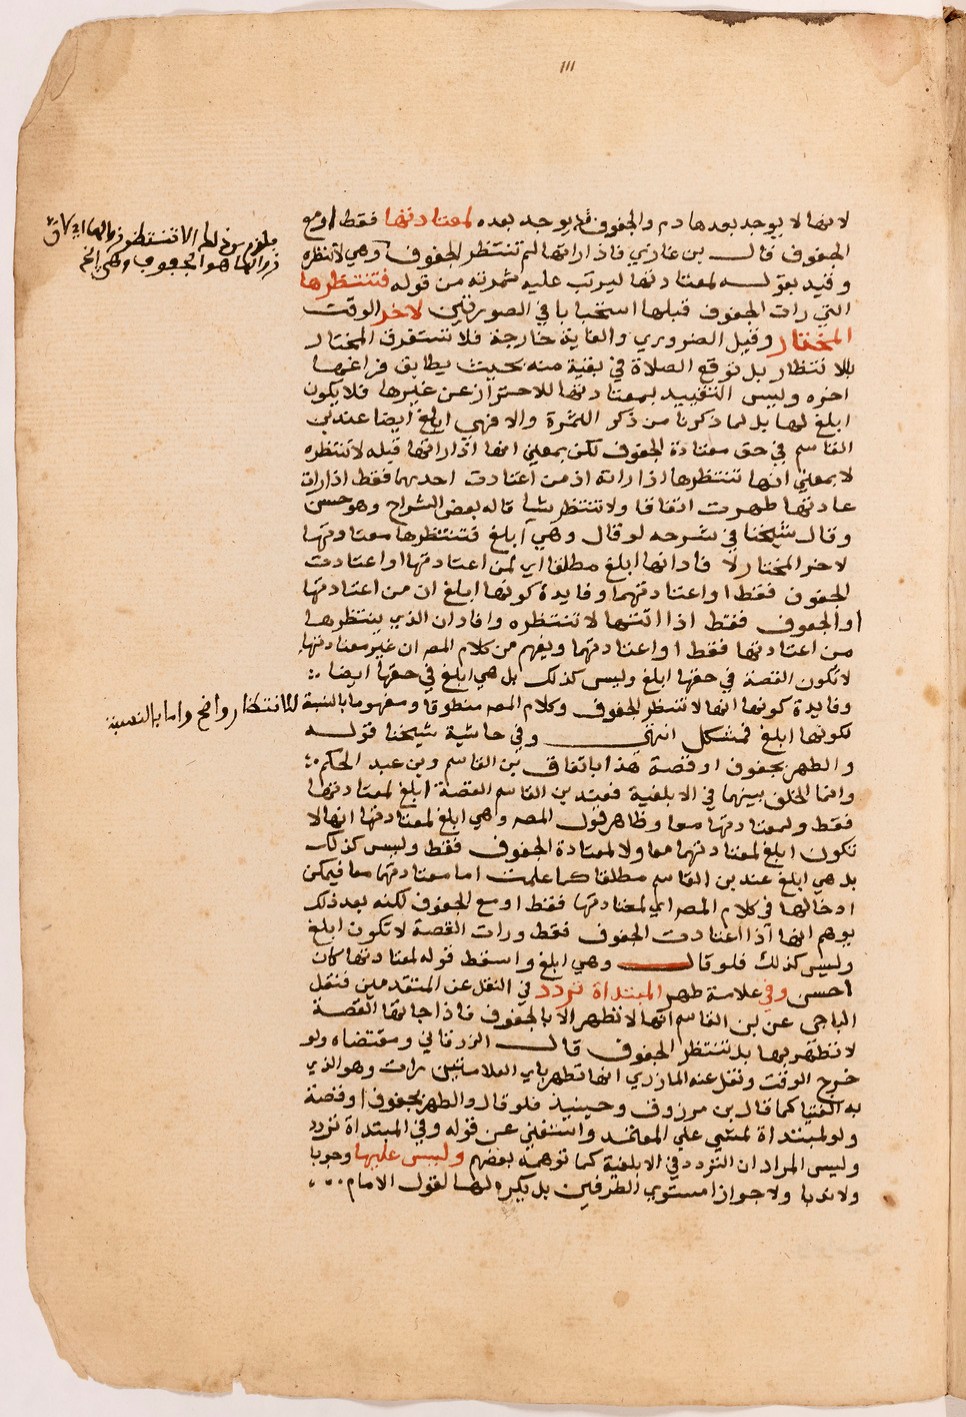 ١١١
لانها لا يوجد بعدها دم والجفوف قد يوجد بعده لمعتادتها فقط او مع
الجفوف قال بن غازي فاذا راتها لم تنتظر الجفوف وهي لا تنتظره
وقيد بقوله لمعتادتها ليرتب عليه ثمرته من قوله فتنتظرها
التي رات الجفوف قبلها استحبابا في الصورتين لاخر الوقت
المختار وقيل الضروري والغاية خارجة فلا تستغرق المختار
بالانتظار بل توقع الصلاة في بقية منه بحيث يطابق فراغها
اخره وليس التقييد بمعتادتها للاحتراز عن غيرها فلا يكون
ابلغ لها بل لما ذكرنا من ذكر الثمرة والا فهي ابلغ ايضا عند بن
القاسم في حق معتادة الجفوف لكن بمعني انها اذا راتها قبله لا تنتظره
لا بمعني انها تنتظرها اذا راته اذ من اعتادت احديهما فقط اذا رات
عادتها طهرت اتفاقا ولا تنتظر شيا قاله بعض الشراح وهو حسن
وقال شيخنا في شرحه لو قال وهي ابلغ فتنتظرها معتادتها
لاخر المختار لا فاد انها ابلغ مطلقا اي لمن اعتادتها او اعتادت
الجفوف فقط او اعتادتهما وفايدة كونها ابلغ ان من اعتادتها
او الجفوف فقط اذا اتتها لا تنتظره وافاد ان الذي ينتظرها
من اعتادتها فقط او اعتادتهما ويفهم من كلام المص ان غير معتادتها
لا تكون القصة في حقها ابلغ وليس كذلك بل هي ابلغ في حقها ايضا
وفايدة كونها انها لا تنتظر الجفوف وكلام المص منطوقا ومفهوما بالنسبة للانتظار واضح واما بالنسبة
لكونها ابلغ فمشكل انتهى وفي حاشية شيخنا قوله
والطهر بجفوف او قصة هذا باتفاق بن القاسم وبن عبد الحكم
وانما الخلف بينهما في الابلغية فعند بن القاسم القصة ابلغ لمعتادتها
فقط ولمعتادتهما معا وظاهر قول المص وهي ابلغ لمعتادتها انها لا
تكون ابلغ لمعتادتهما معا ولا لمعتادة الجفوف فقط وليس كذلك
بل هي ابلغ عند بن القاسم مطلقا كما علمت اما معتادتهما معا فيمكن
ادخالها في كلام المص اي لمعتادتها فقط او مع الجفوف لكنه بعد ذلك
يوهم انها اذا اعتادت الجفوف فقط ورات القصة لا تكون ابلغ
وليس كذلك فلو قال وهي ابلغ واسقط قوله لمعتادتها كان
احسن وفي علامة طهر المبتداة تردد في النقل عن المتقدمين فنقل
الباجي عن بن القاسم انها لا تطهر الا بالجفوف فاذا جاتها القصة
لا تطهر بها بل تنتظر الجفوف قال الزرقاني ومقتضاه ولو
خرج الوقت ونقل عنه المازري انها تطهر باي العلامتين رات وهو الذي
به الفتيا كما قال بن مرزوق وحينيذ فلو قال والطهر بجفوف او قصة
ولو لمبتداة لمشي علي المعتمد واستغني عن قوله وفي المبتداة تردد
وليس المراد ان التردد في الابلغية كما توهمه بعضهم وليس عليها وجوبا
ولا ندبا ولا جوازا مستوي الطرفين بل يكره لها لقول الامام